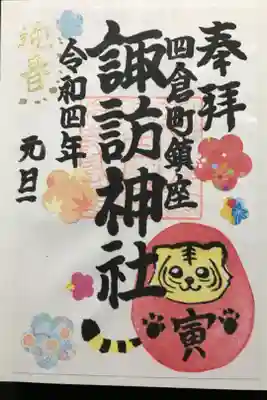 奉拝
四倉町鎮座
諏訪神社
令和四年
元旦
迎春
寅